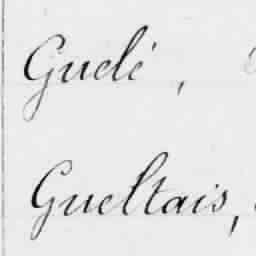 Guelé,
Gueltais,